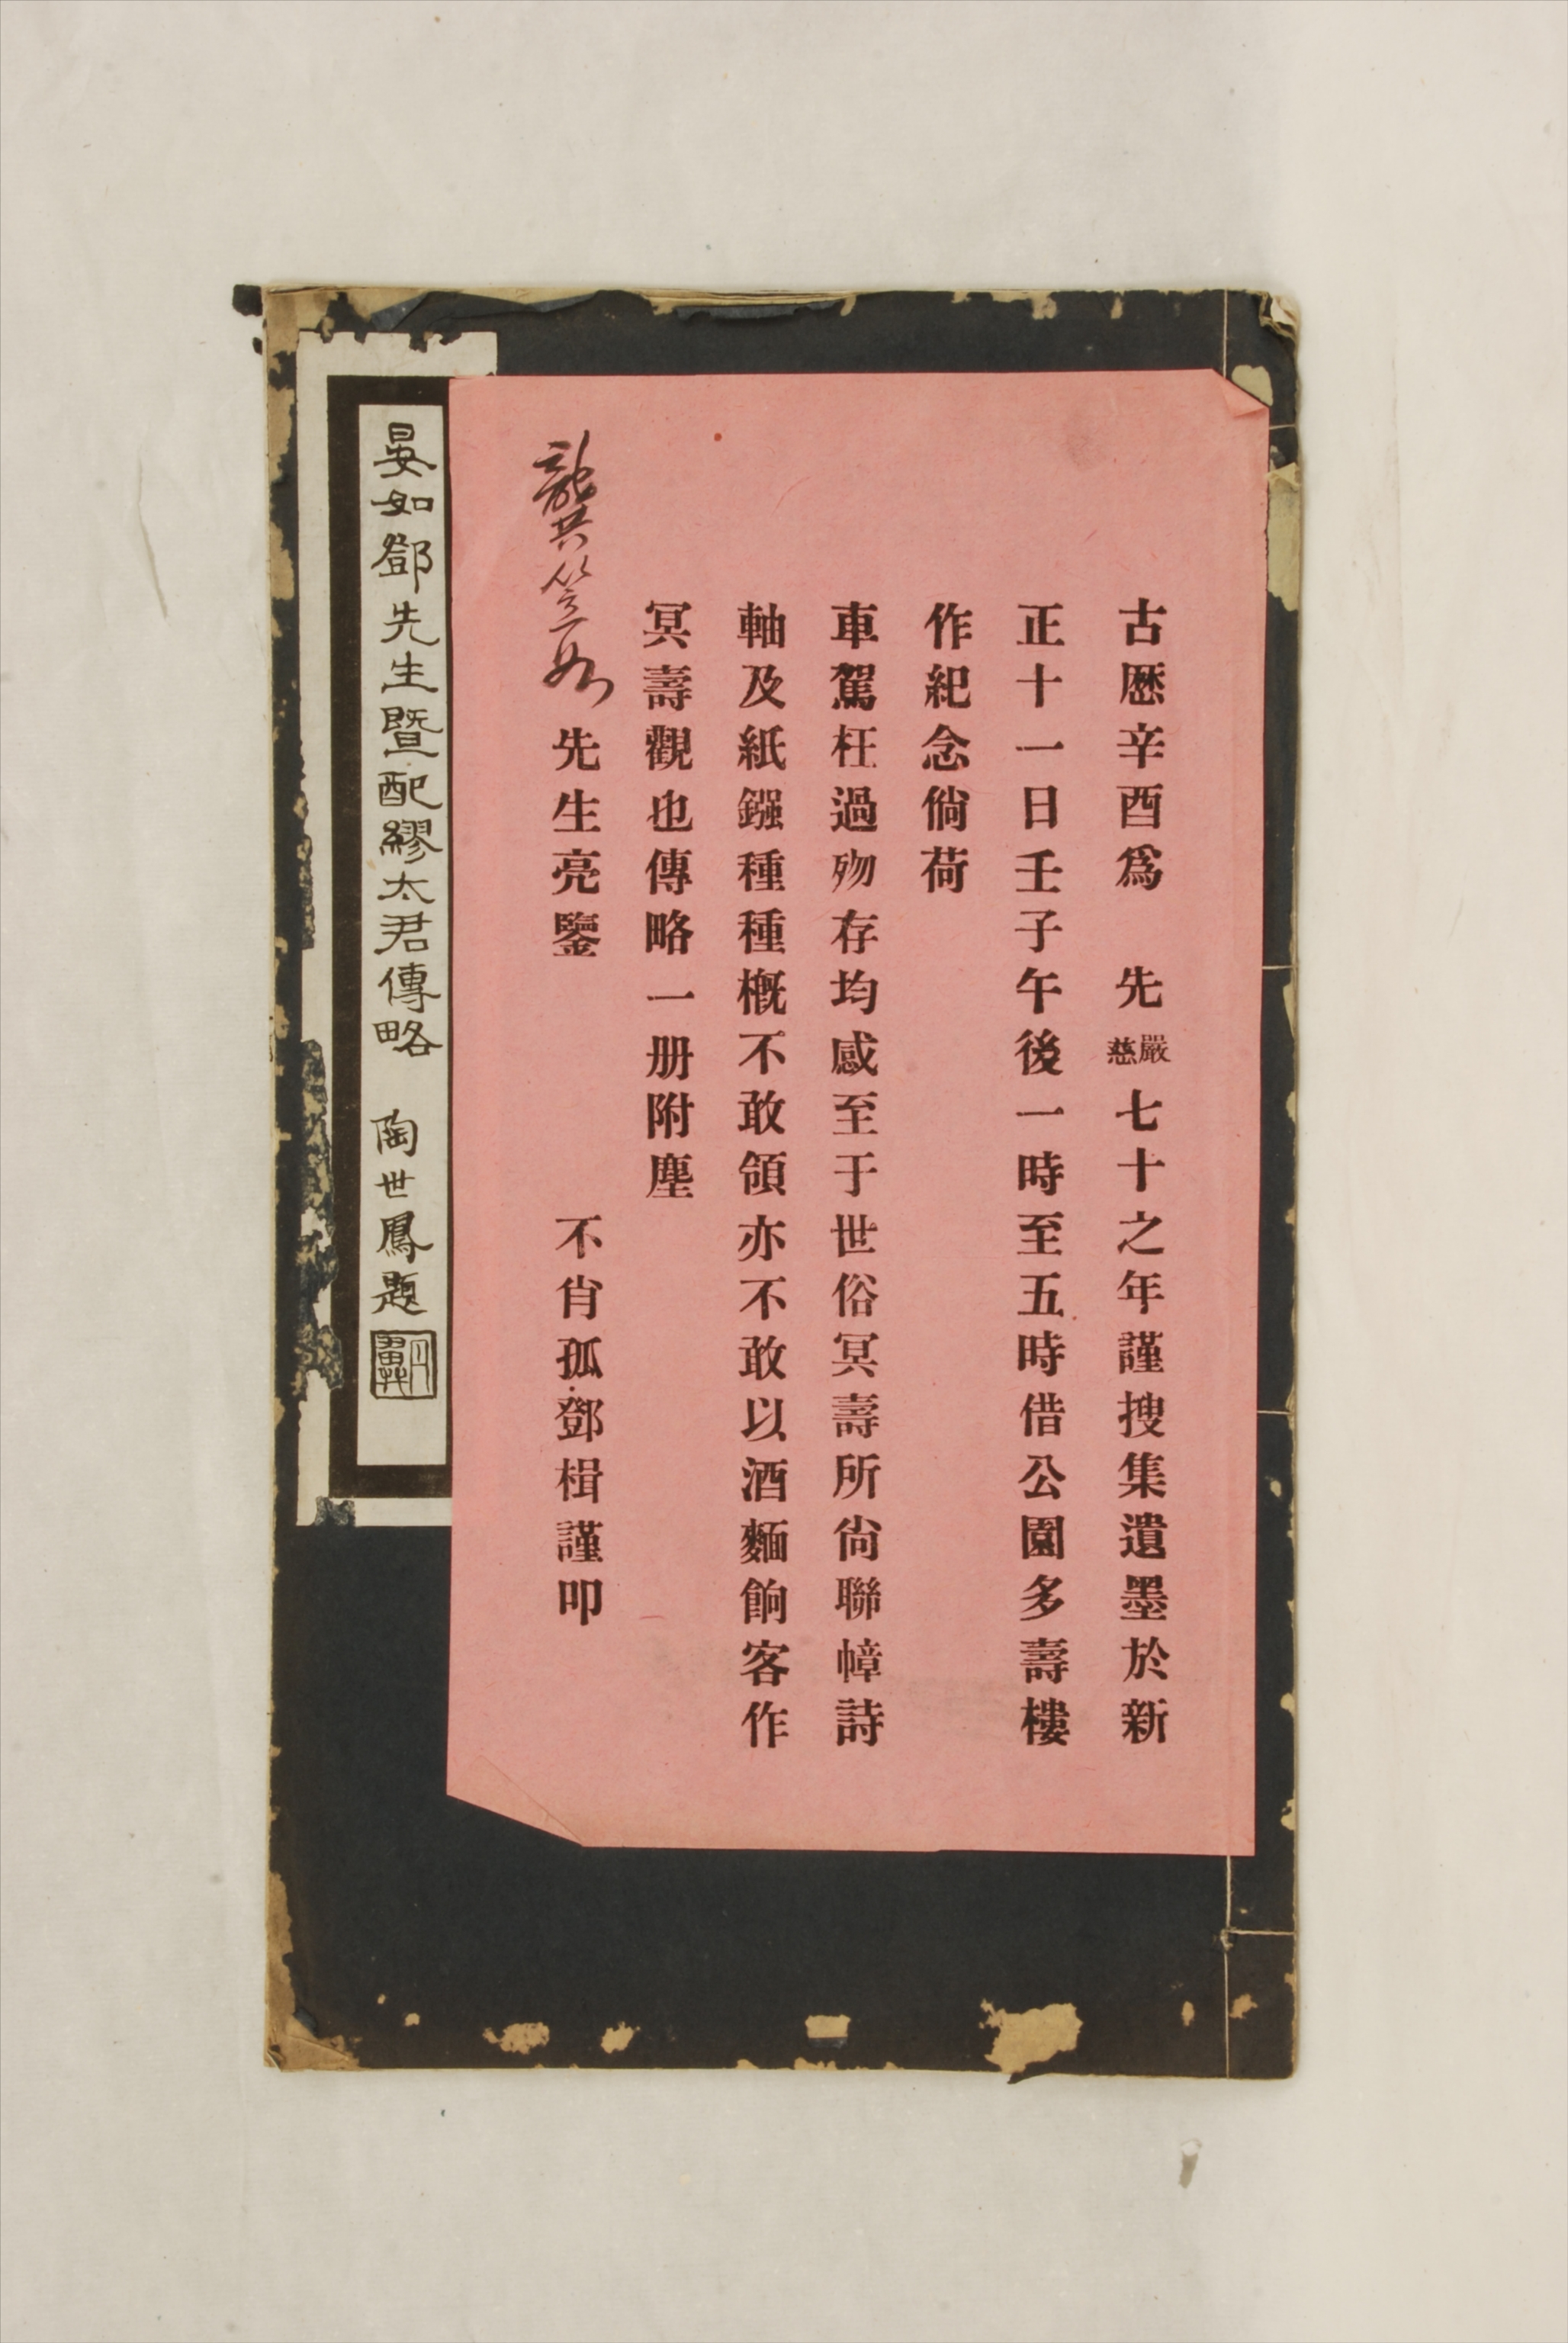 古歷辛酉爲　先嚴慈七十之年謹搜集遺墨於新
正十一日壬子午後一時至五時借公園多壽樓
作紀念倘荷
車駕枉過歾存均感至于世俗冥壽所尙聯幛詩
軸及紙鏹種種槪不敢領亦不敢以酒麵餉客作
冥壽觀也傳略一册附塵
龔笠如先生亮鑒　不肖孤鄧楫謹叩
晏如鄧先生暨配繆太君傳略　陶世鳳題